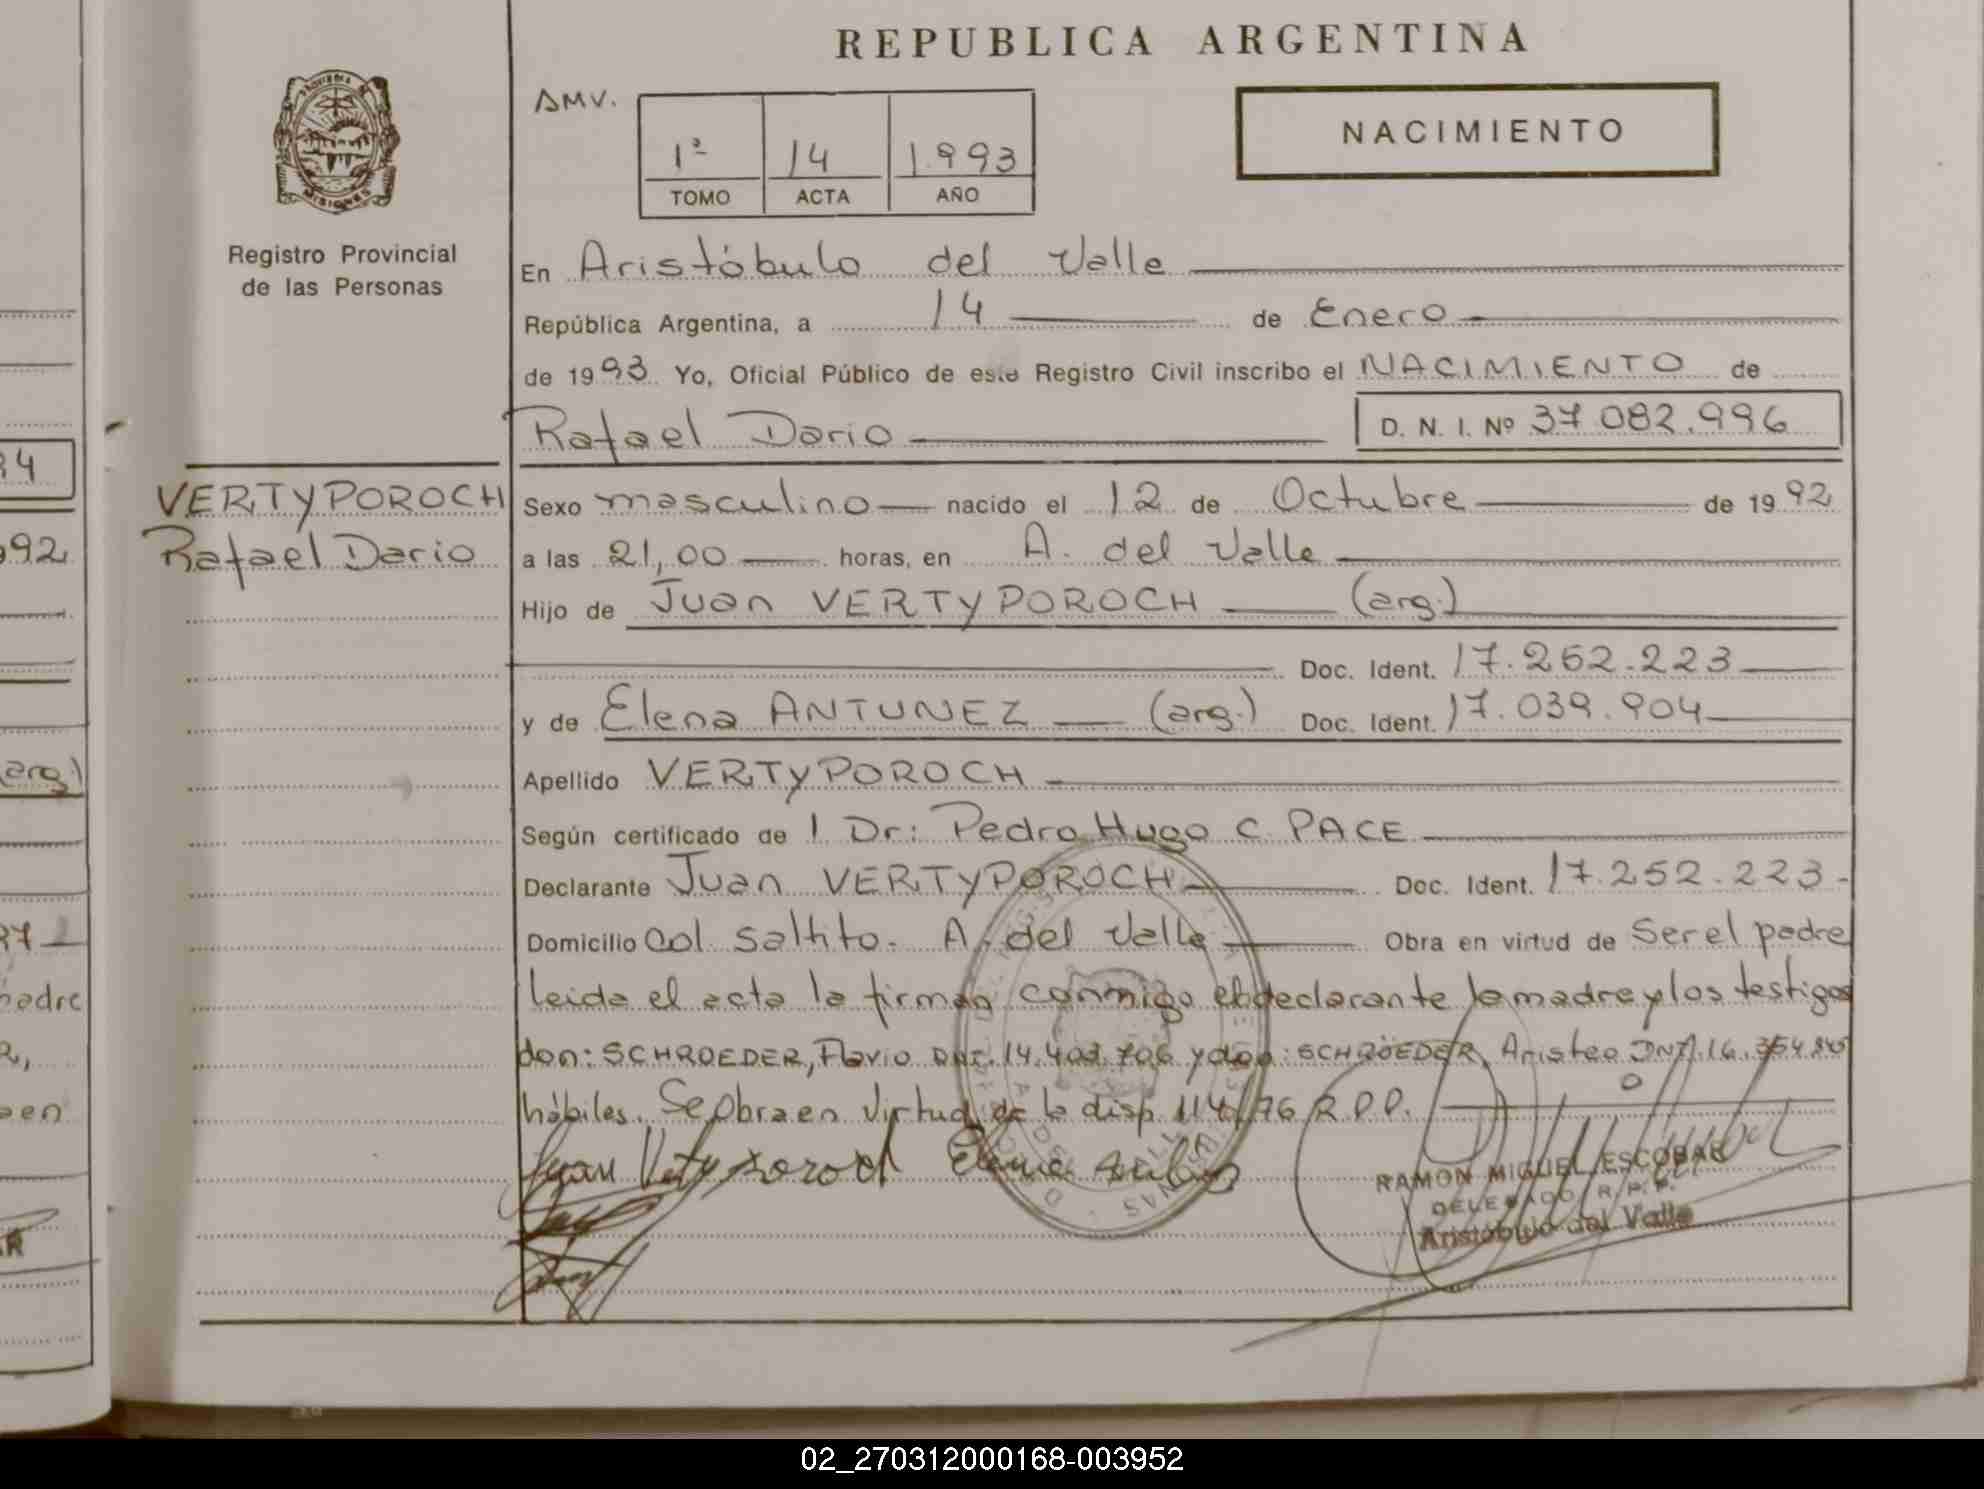 REPUBLICA ARGENTINA
AMV.
NACIMIENTO
1º 14 1.993
TOMO ACTA AÑO
MISIONES
Registro Provincial
de las Personas
En Aristóbulo del Valle
República Argentina, a 14 de Enero
de 1993 Yo, Oficial Público de este Registro Civil inscribo el NACIMIENTO de
Rafael Dario D. N. I. Nº 37.082.996
VERTYPOROCH
Rafael Dario
Sexo masculino nacido el 12 de Octubre de 1992
a las 21,00 horas, en A. del Valle
Hijo de Juan VERTYPOROCH (arg.)
Doc. Ident. 17.252.223
y de Elena ANTUNEZ (arg.) Doc. Ident. 17.039.904
Apellido VERTYPOROCH
Según certificado de l Dr: Pedro Hugo C. PACE
Declarante Juan VERTYPOROCH Doc. Ident. 17.252.223-
Domicilio Col. Saltito. A. del Valle Obra en virtud de Ser el padre
leida el acta la firman conmigo el declarante la madre y los testigos
don: SCHROEDER, Flavio DNI. 14.403.706 y don: SCHROEDER, Aristeo DNI. 16.354.845
hábiles. Se obra en virtud de la disp. 114/76 R.P.P.
Juan Vertyporoch Elena
RAMON MIGUEL ESCOBAR
DELEGADO R.P.P.
Aristóbulo del Valle
34
992
(arg.)
padre
02_270312000168-003952